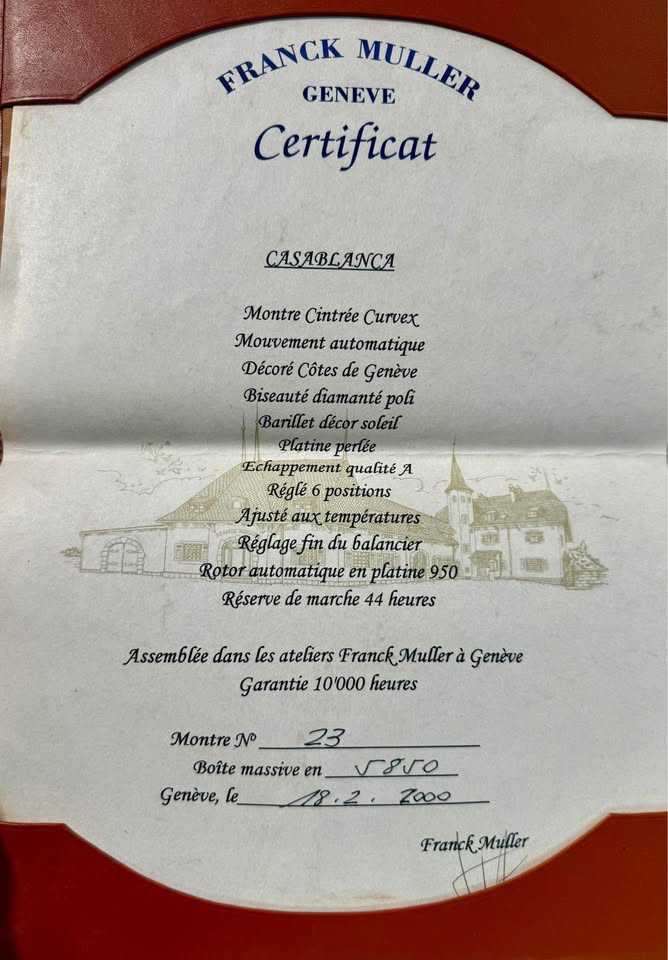 FRANCK MULLER
GENEVE
Certificat
CASABLANCA
Montre Cintrée Curvex
Mouvement automatique
Décoré Côtes de Genève
Biseauté diamanté poli
Barillet décor soleil
Platine perlée
Echappement qualité A
Réglé 6 positions
Ajusté aux températures
Réglage fin du balancier
Rotor automatique en platine 950
Réserve de marche 44 heures
Assemblée dans les ateliers Franck Muller à Genève
Garantie 10'000 heures
Montre Nº 23
Boîte massive en 5850
Genève, le 18.2.2000
Franck Muller